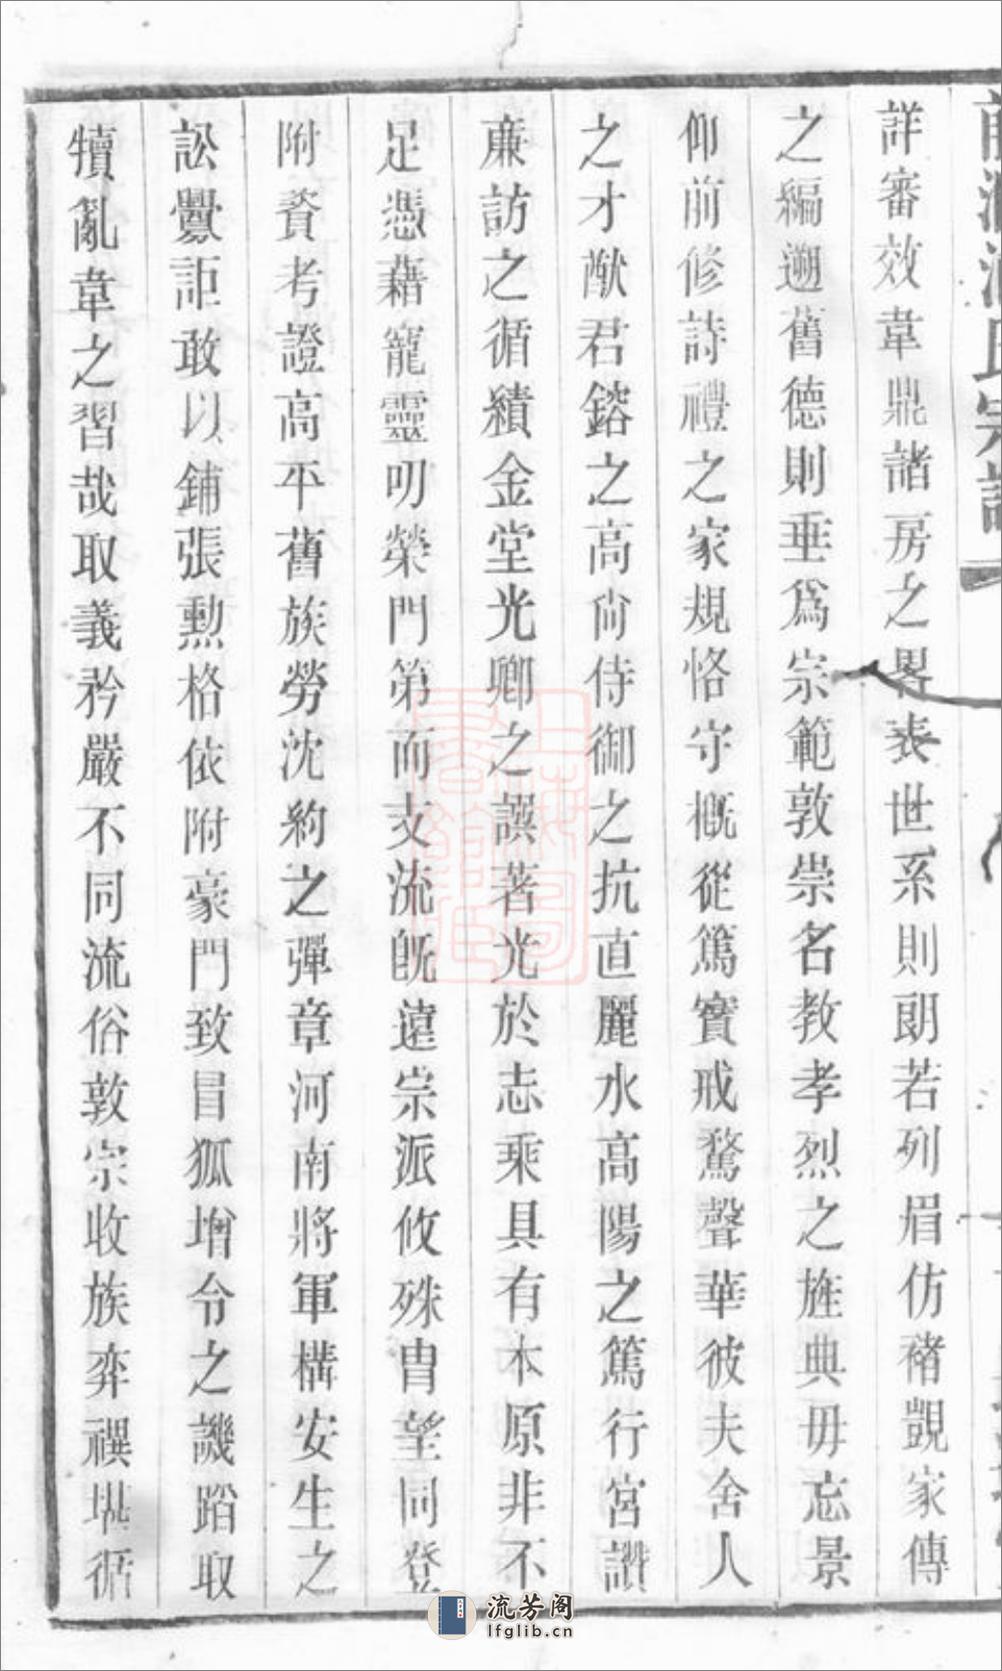 詳審效韋鼎諸房之畧表世系則朗若列眉仿褚覬家傳
之編遡舊德則垂爲宗範敦崇名教孝烈之旌典毋忘景
仰前修詩禮之家規恪守概從篤實戒騖聲華彼夫舍人
之才猷君鎔之高尙侍御之抗直麗水高陽之篤行宮讚
廉訪之循績金堂光卿之譔著光於志乘具有本原非不
足憑藉寵靈叨榮門第而支流旣遠宗派攸殊胄望同登
附資考證高平舊族勞沈約之彈章河南將軍構安生之
訟釁詎敢以鋪張勲格依附豪門致冒狐增令之譏蹈取
犢亂韋之習哉取義矜嚴不同流俗敦宗收族弈禩堪循
流芳阁
lfglib.cn